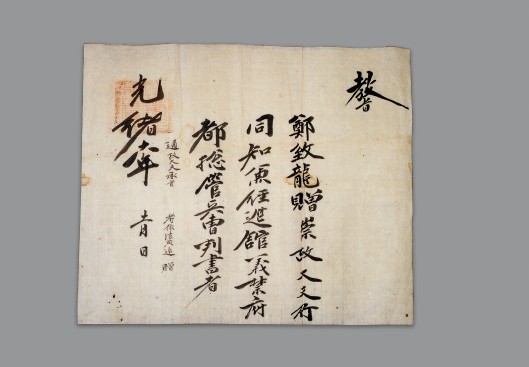 敎旨
鄭致龍贈崇政大夫行
同知兼館義禁府
都摠管兵曹判書者
通政大夫承旨
考依追贈
光緒年月日